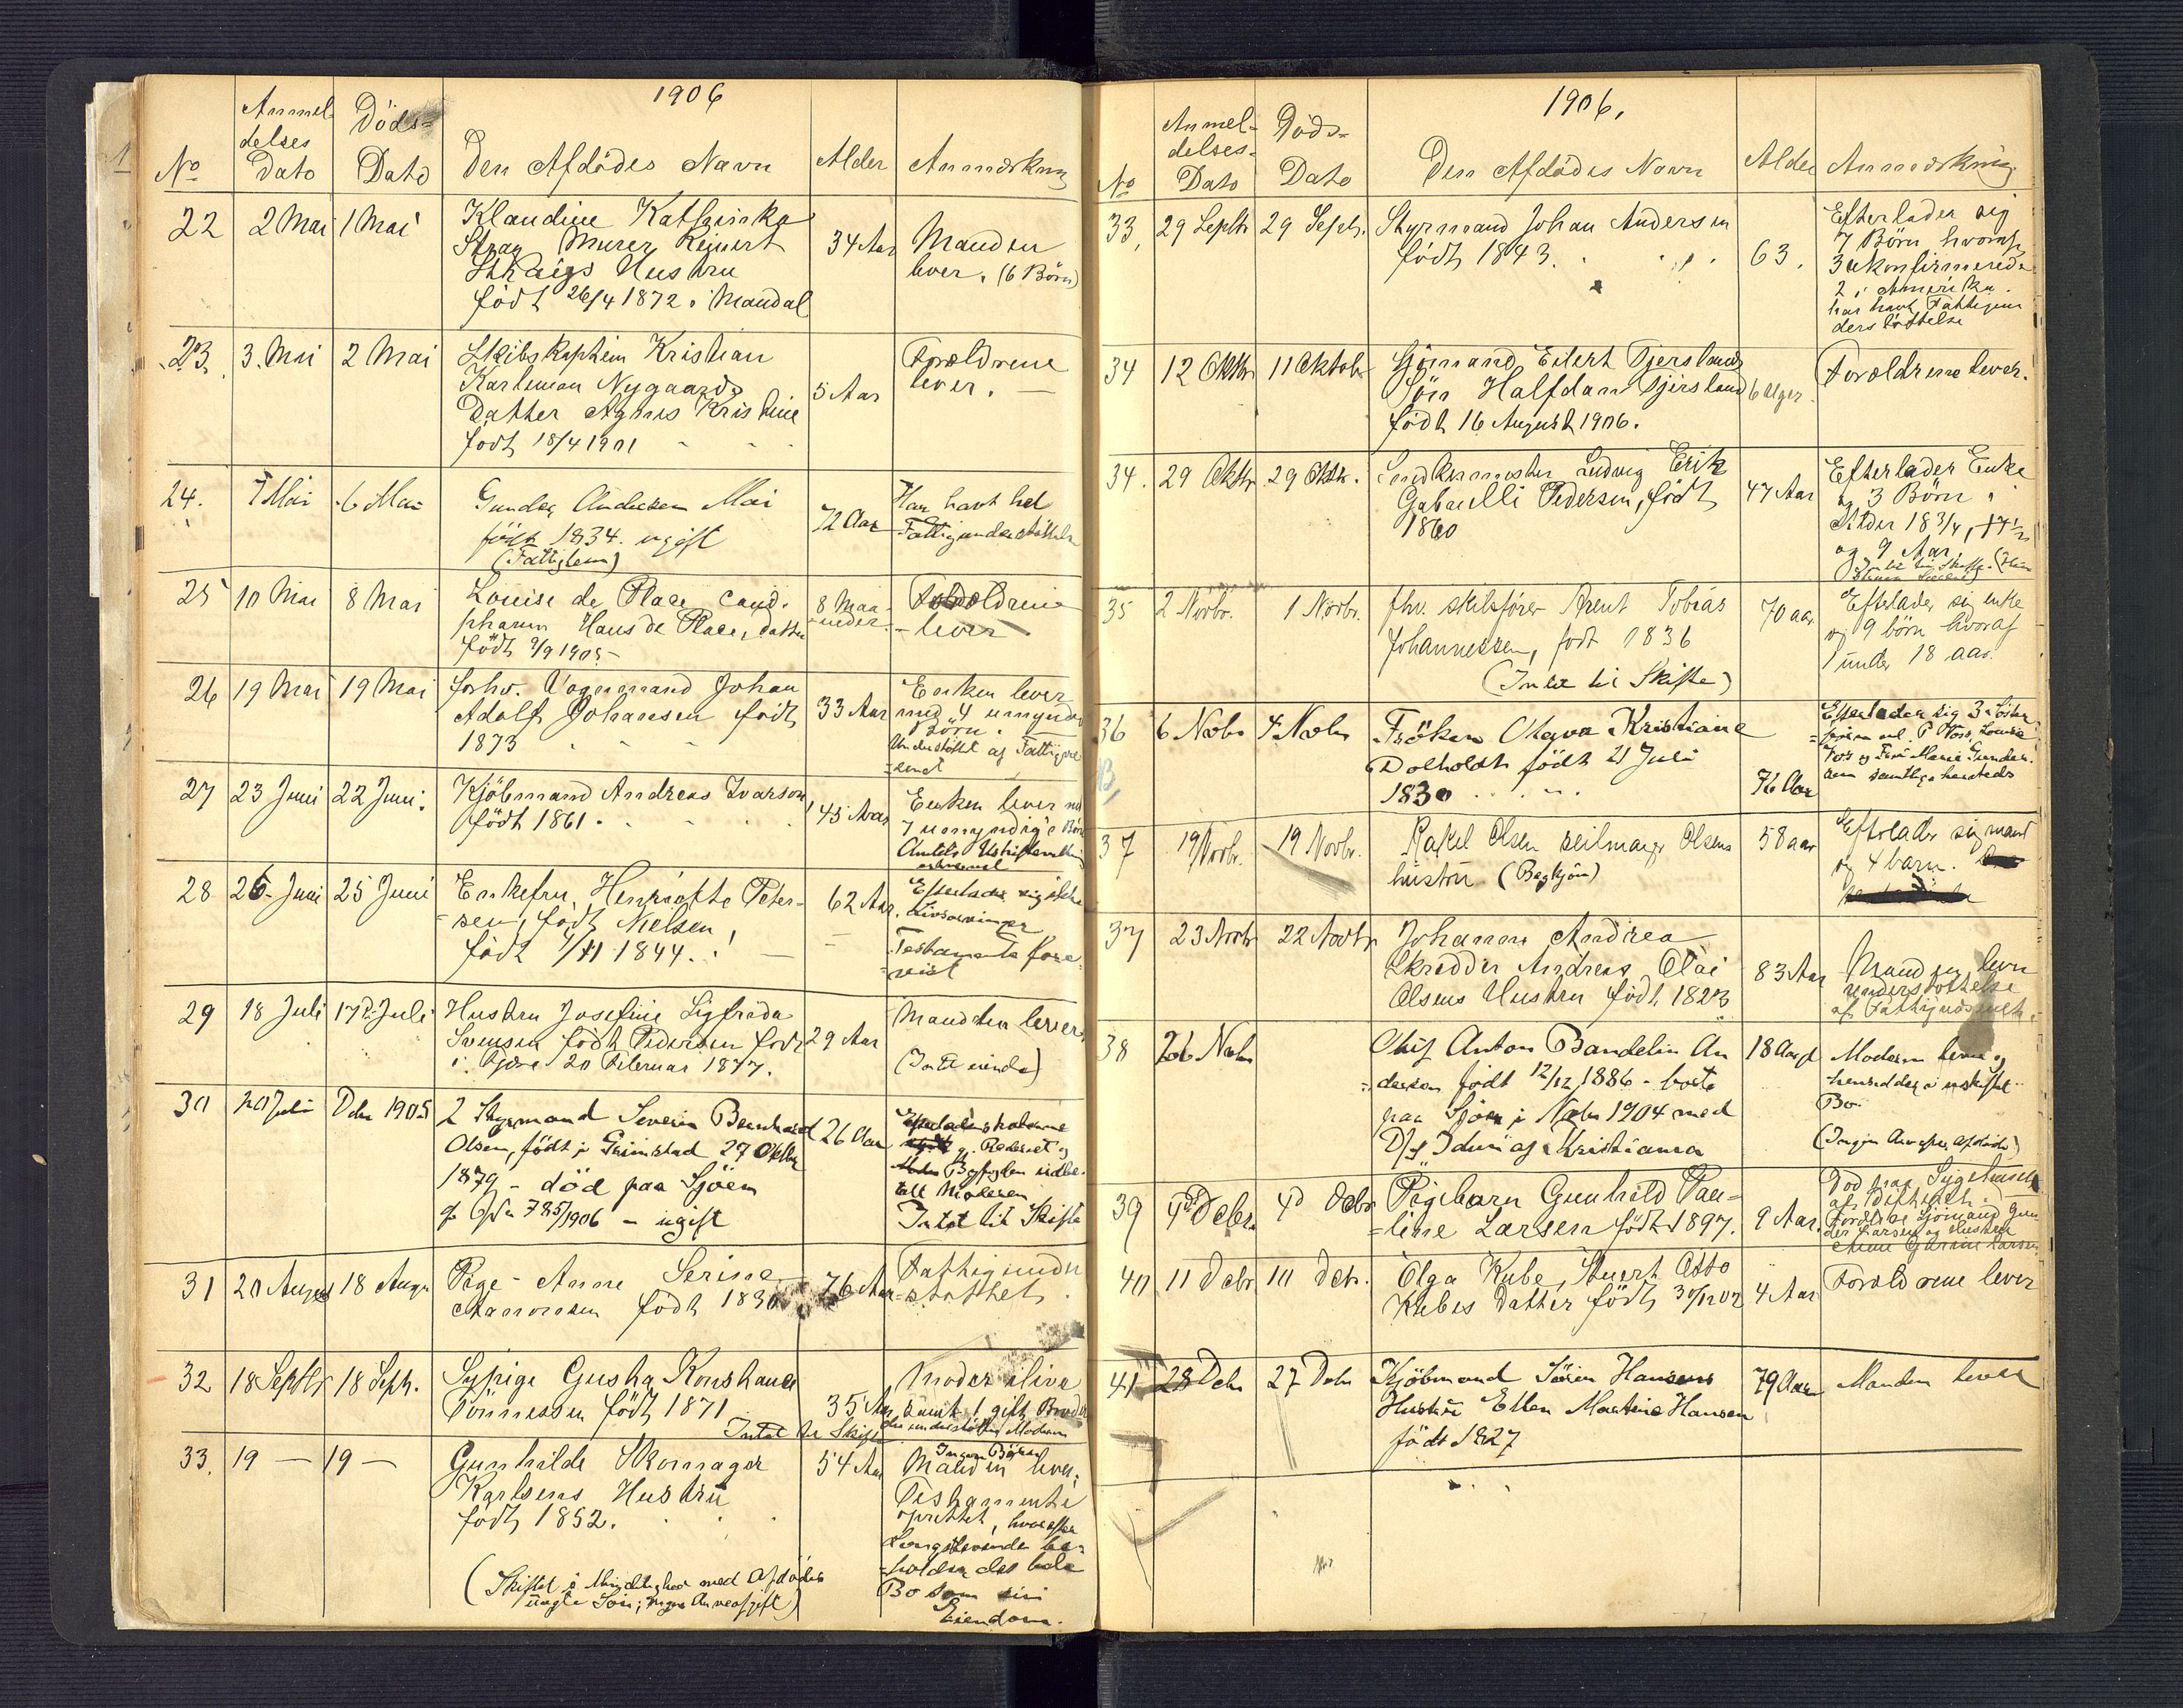 1906
No
Anmel-
delses
Dato
Döds-
Dato
Den Afdödes Navn
Alder
Anmærkning
22
2 Mai
1 Mai
Klandine Kathinka
Stray Murer Reinert
Hustru
født 26/4 1872 i Mandal
34 Aar
Manden
lever. (6 Börn)
23.
3. Mai
2 Mai
Skibskaptein Kristian
Karleman Nygaards
Datter Agnes Kristine
født 18/4 1901
5 Aar
Forældrene
lever.
24.
7 Mai
6 Mai
Gunder Andersen Moi
født 1834. ugift
(Fattiglem)
72 Aar
Har havt hel
Fattigunderstøttelse
25
10 Mai
8 Mai
Louise de Place cand.
pharm Hans de Place, datter
født 9/9 1905
8 Maa-
neder
Forældrene
lever
26
19 Mai
19 Mai
forhv. Vognmand Johan
Adolf Johansen født
1873
33 Aar
Enken lever
med 4 umyndige
Börn.
Understøttet af Fattigvæ-
senet
27
23 Juni
22 Juni.
Kjöbmand Andreas Ivarson
født 1861.
45 Aar
Enken lever med
7 umyndige Börn
28
26. Juni
25 Juni
Enkefru Henriette Peter-
sen, født Nielsen,
født 4/11 1844.
62 Aar.
Efterlader sig ikke
Livsarvinger
Testamente fore-
vist
29
18 Juli
17de Juli
Hustru Josefine Sigfrida
Svensen født Pedersen født
i Fjære 20 Februar 1877.
29 Aar
Manden lever
(Intet eiende)
30
20 Juli
Debr 1905
2 Styrmand Severin Bernhard
Olsen, født i Grimstad 27 Oktbr
1879 - död paa Sjöen
785/1906 - ugift
26 Aar
Rederiet og
til Moderen
Intet til Skifte
31
20 August
18 Augu
Pige - Anne Serine
Aanonsen født 1830
76 Aar
Fattigunder-
støttet.
32
18 Septbr
18 Sept.
Sypige Gusta Konstance
Tönnessen født 1871
Intet til Skifte
35 Aar
Moder ilive
samt 1 gift Broder
der understøtter Moderen
33.
19 —
19 —
Gunhilde Skomager
Karlsens Hustru
født 1852.
(Skiftet i Mindelighed med Afdödes
uægte Sön; ingen Arveafgift)
54 Aar
Ingen Börn
Manden lever.
Testamente
oprettet, hvorefter
Længstlevende be-
holder det hele
Bo som sin
Eiendom.
1906.
No
Anmel-
delses-
Dato
Döds-
Dato
Den Afdødes Navn
Alder
Anmærkning
33,
29 Septbr
29 Septr.
Styrmand Johan Andersen
født 1843.
63.
Efterlader sig
7 Börn hvoraf
3 ukonfirmerede
2 i Amerika.
har havt Fattigun
derstøttelse
34
12 Oktbr
11 Oktobr
Sjömand Eilert Gjerslands
Sön Halfdan Gjersland
født 16 August 1906.
6 Uger
Forældrene lever.
34.
29 Oktbr
29 Oktbr.
Smedkermester Ludvig Erik
Gabrielli Pedersen, født
1860
47 Aar
Efterlader Enke
og 3 Börn i
Alder 18 3/4, 17 1/2
og 9 Aar.
35
2 Novbr.
1 Novbr.
fhv. skibsförer Arent Tobias
Johannessen, født 1836
(Intet til Skifte)
70 aar
Efterlader sig enke
og 9 börn hvoraf
1 under 18 aar.
36
6 Novbr
4 Novbr
Fröken Olava Kristiane
Dolholdt født 21 Juli
1830
76 Aar
Efterlader sig 3 Söster-
samtlige herstede
37
19 Novbr.
19 Novbr.
Rakel Olsen seilmager Olsens
hustru (Bergkjön)
58 aar
Efterlader sig mand
og 4 barn.
37
23 Novbr
22 Novbr
Johanne Andrea
Skrædder Andreas Olai
Olsens Hustru født 1823
83 Aar
Manden lever
understøttelse
af Fattigvæsenet.
38
26 Novbr
Oluf Anton Bandelin An
dersen født 12/12 1886 - borte
paa Sjöen i Novbr 1904 med
D/S Idun af Kristiania
18 Aar
Moderen lever og
hensidder i uskiftet
Bo.
39
4de Debr.
4de Debr
Pigebarn Gunhild Pau-
line Larsen født 1897.
9 Aar.
Död paa Sygehuset
af Difterit.
Forældre Sjömand Gun
der Larsen og Hustru
40
11 Debr
10 Debr.
Olga Kube, Stuert Otto
Kubes Datter født 30/12 02
4 Aar
Forældrene lever
41
28 Debr
27 Debr
Kjöbmand Sören Hansens
Hustru Ellen Martine Hansen
født 1827
79 Aar
Manden lever